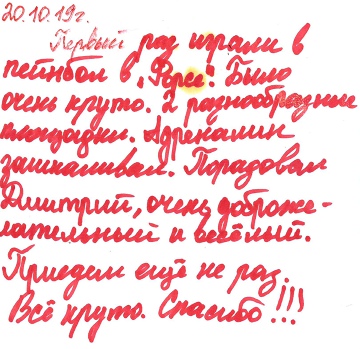 20.10.19г.
Первый раз играли в
пейнбол в „Форсе". Было
очень круто. 2 разнообразные
площадки. Адреналин
зашкаливал. Порадовал
Дмитрий, очень доброже-
лательный и весёлый.
Приедем ещё не раз.
Всё круто. Спасибо!!!